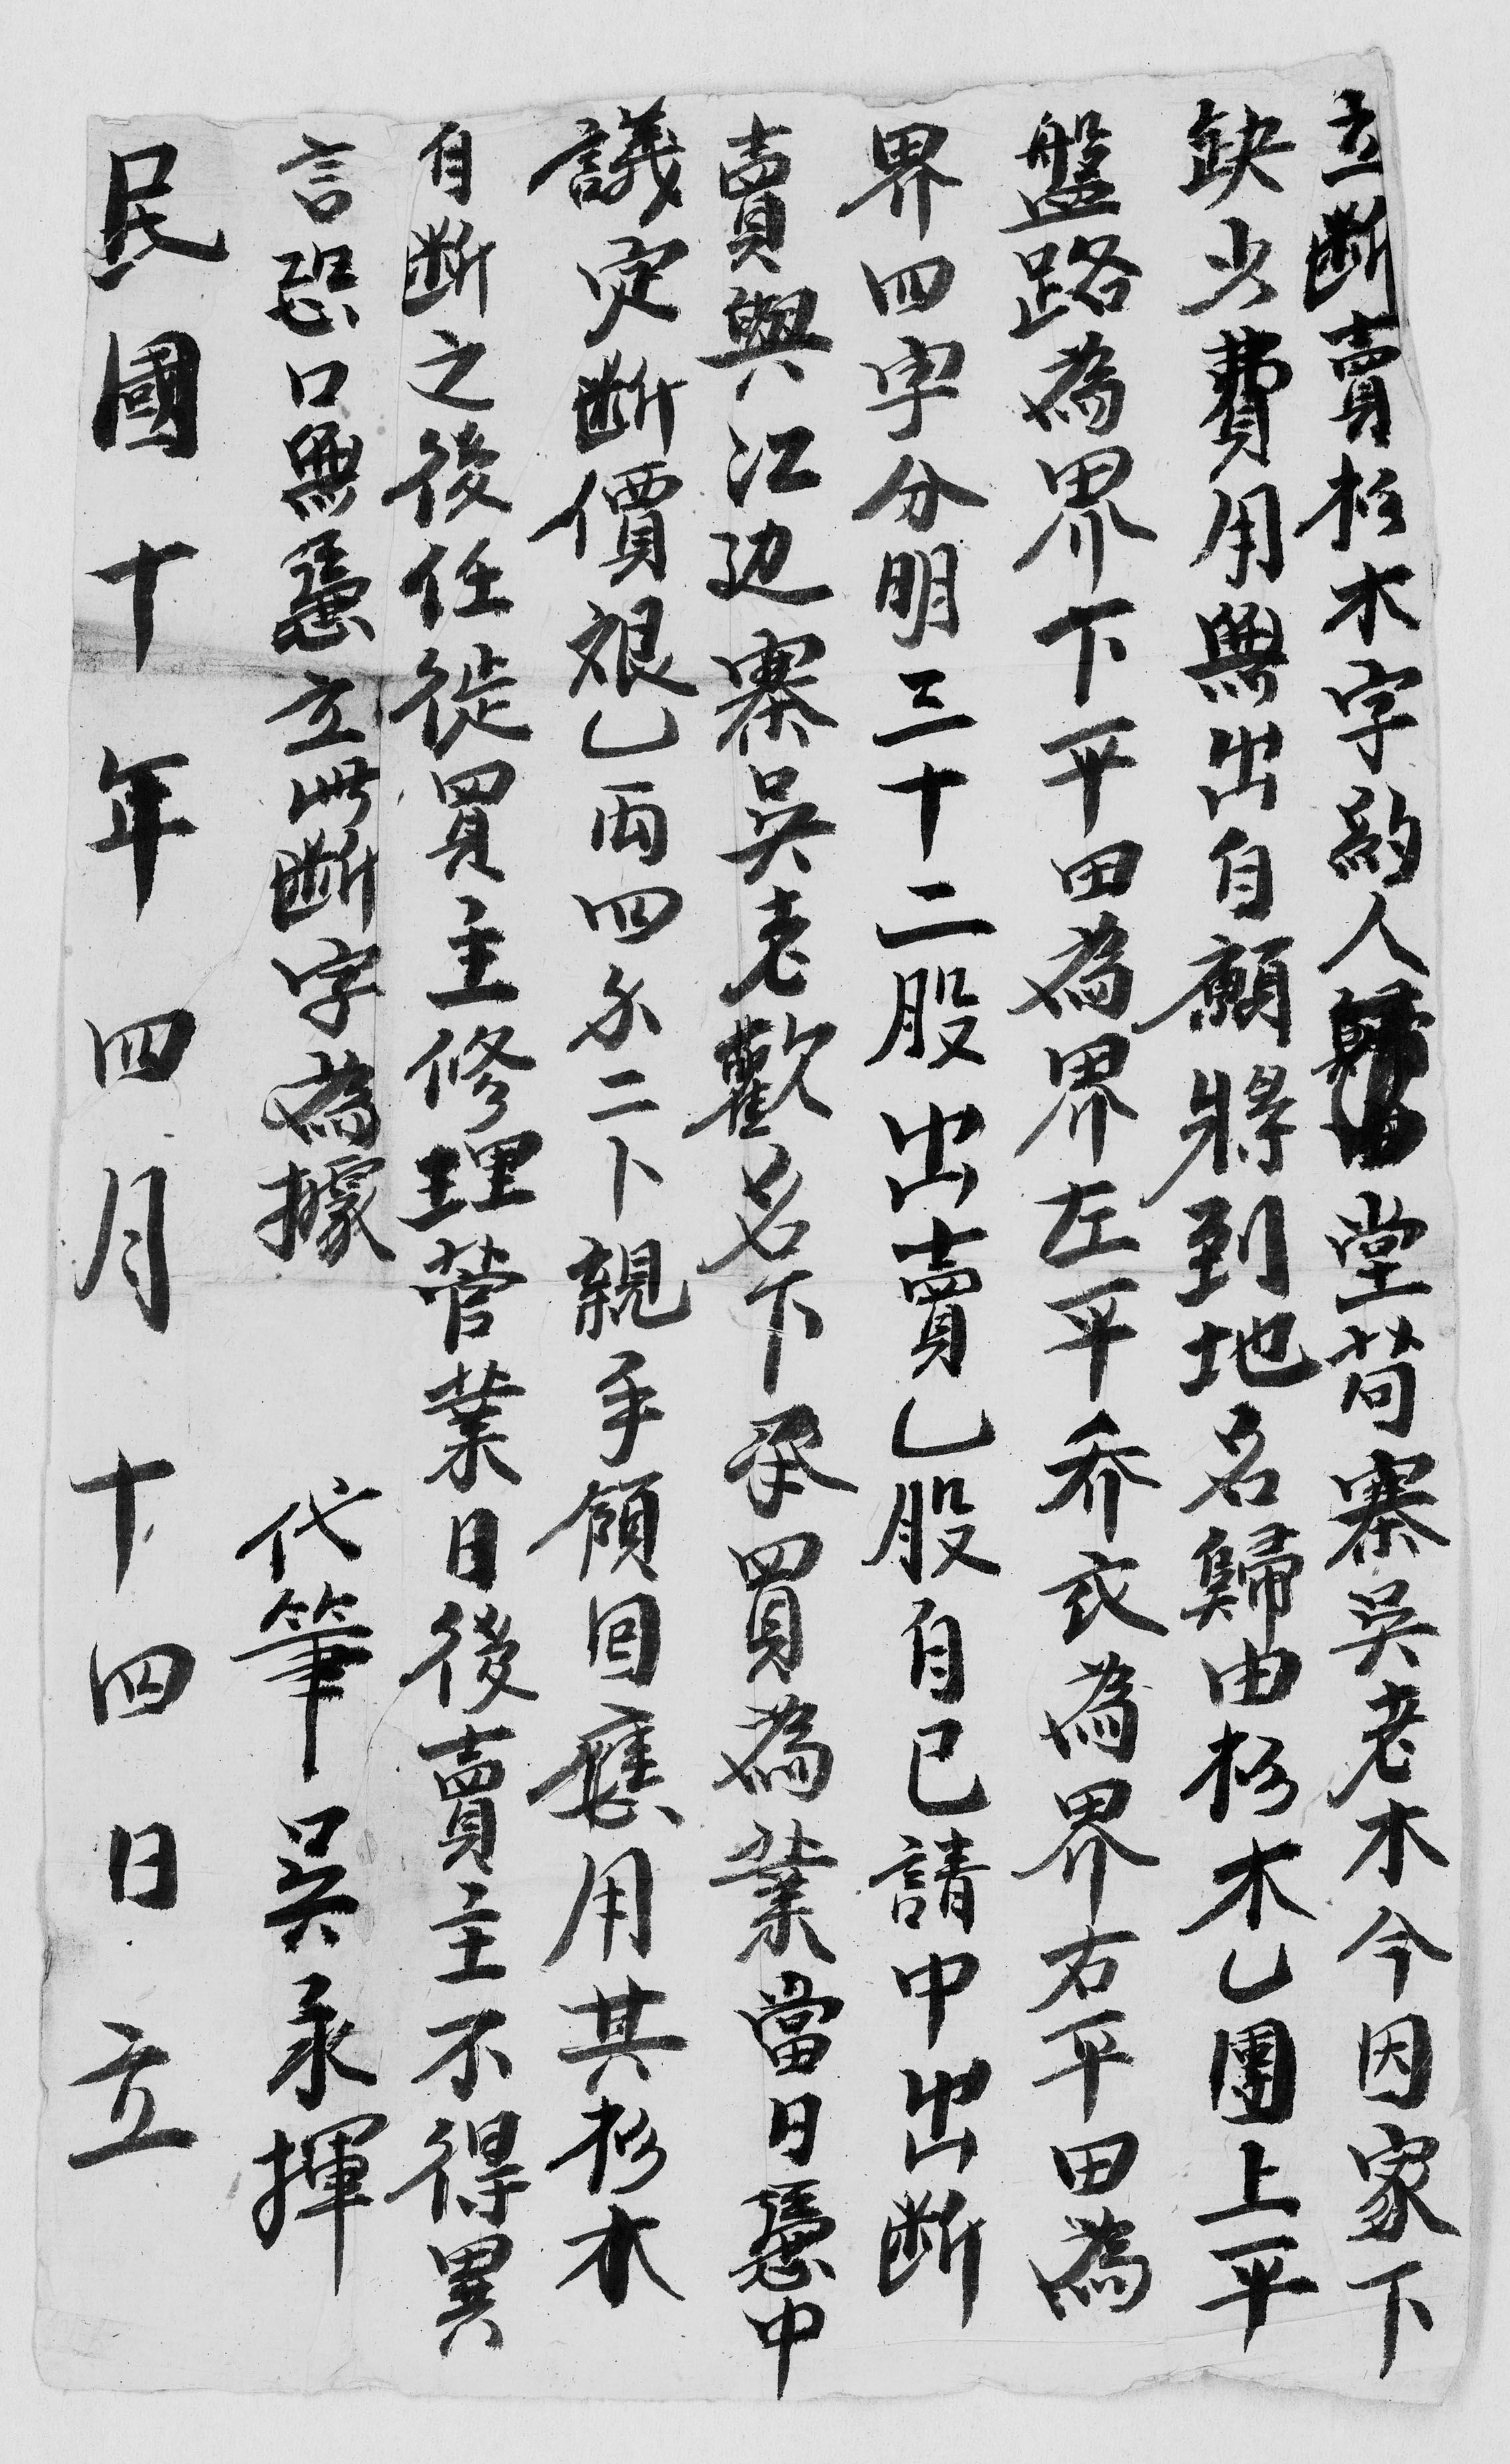 立断賣杉木字約人堂苟寨吳老木今因家下
缺少費用無出自願將到地名歸由杉木乙團上平
盤路為界下平田為界左平乔衣為界右平田為
界四字分明三十二股出賣乙股自已請中出断
賣與江边寨吳老歡名下承買為業當日憑中
議定断價艮乙両四分二卜親手領回應用其杉木
自断之後任從買主修理管業日後賣主不得異
言恐口無憑立此断字為據
代筆吳永揮
民國十年四月十四日立